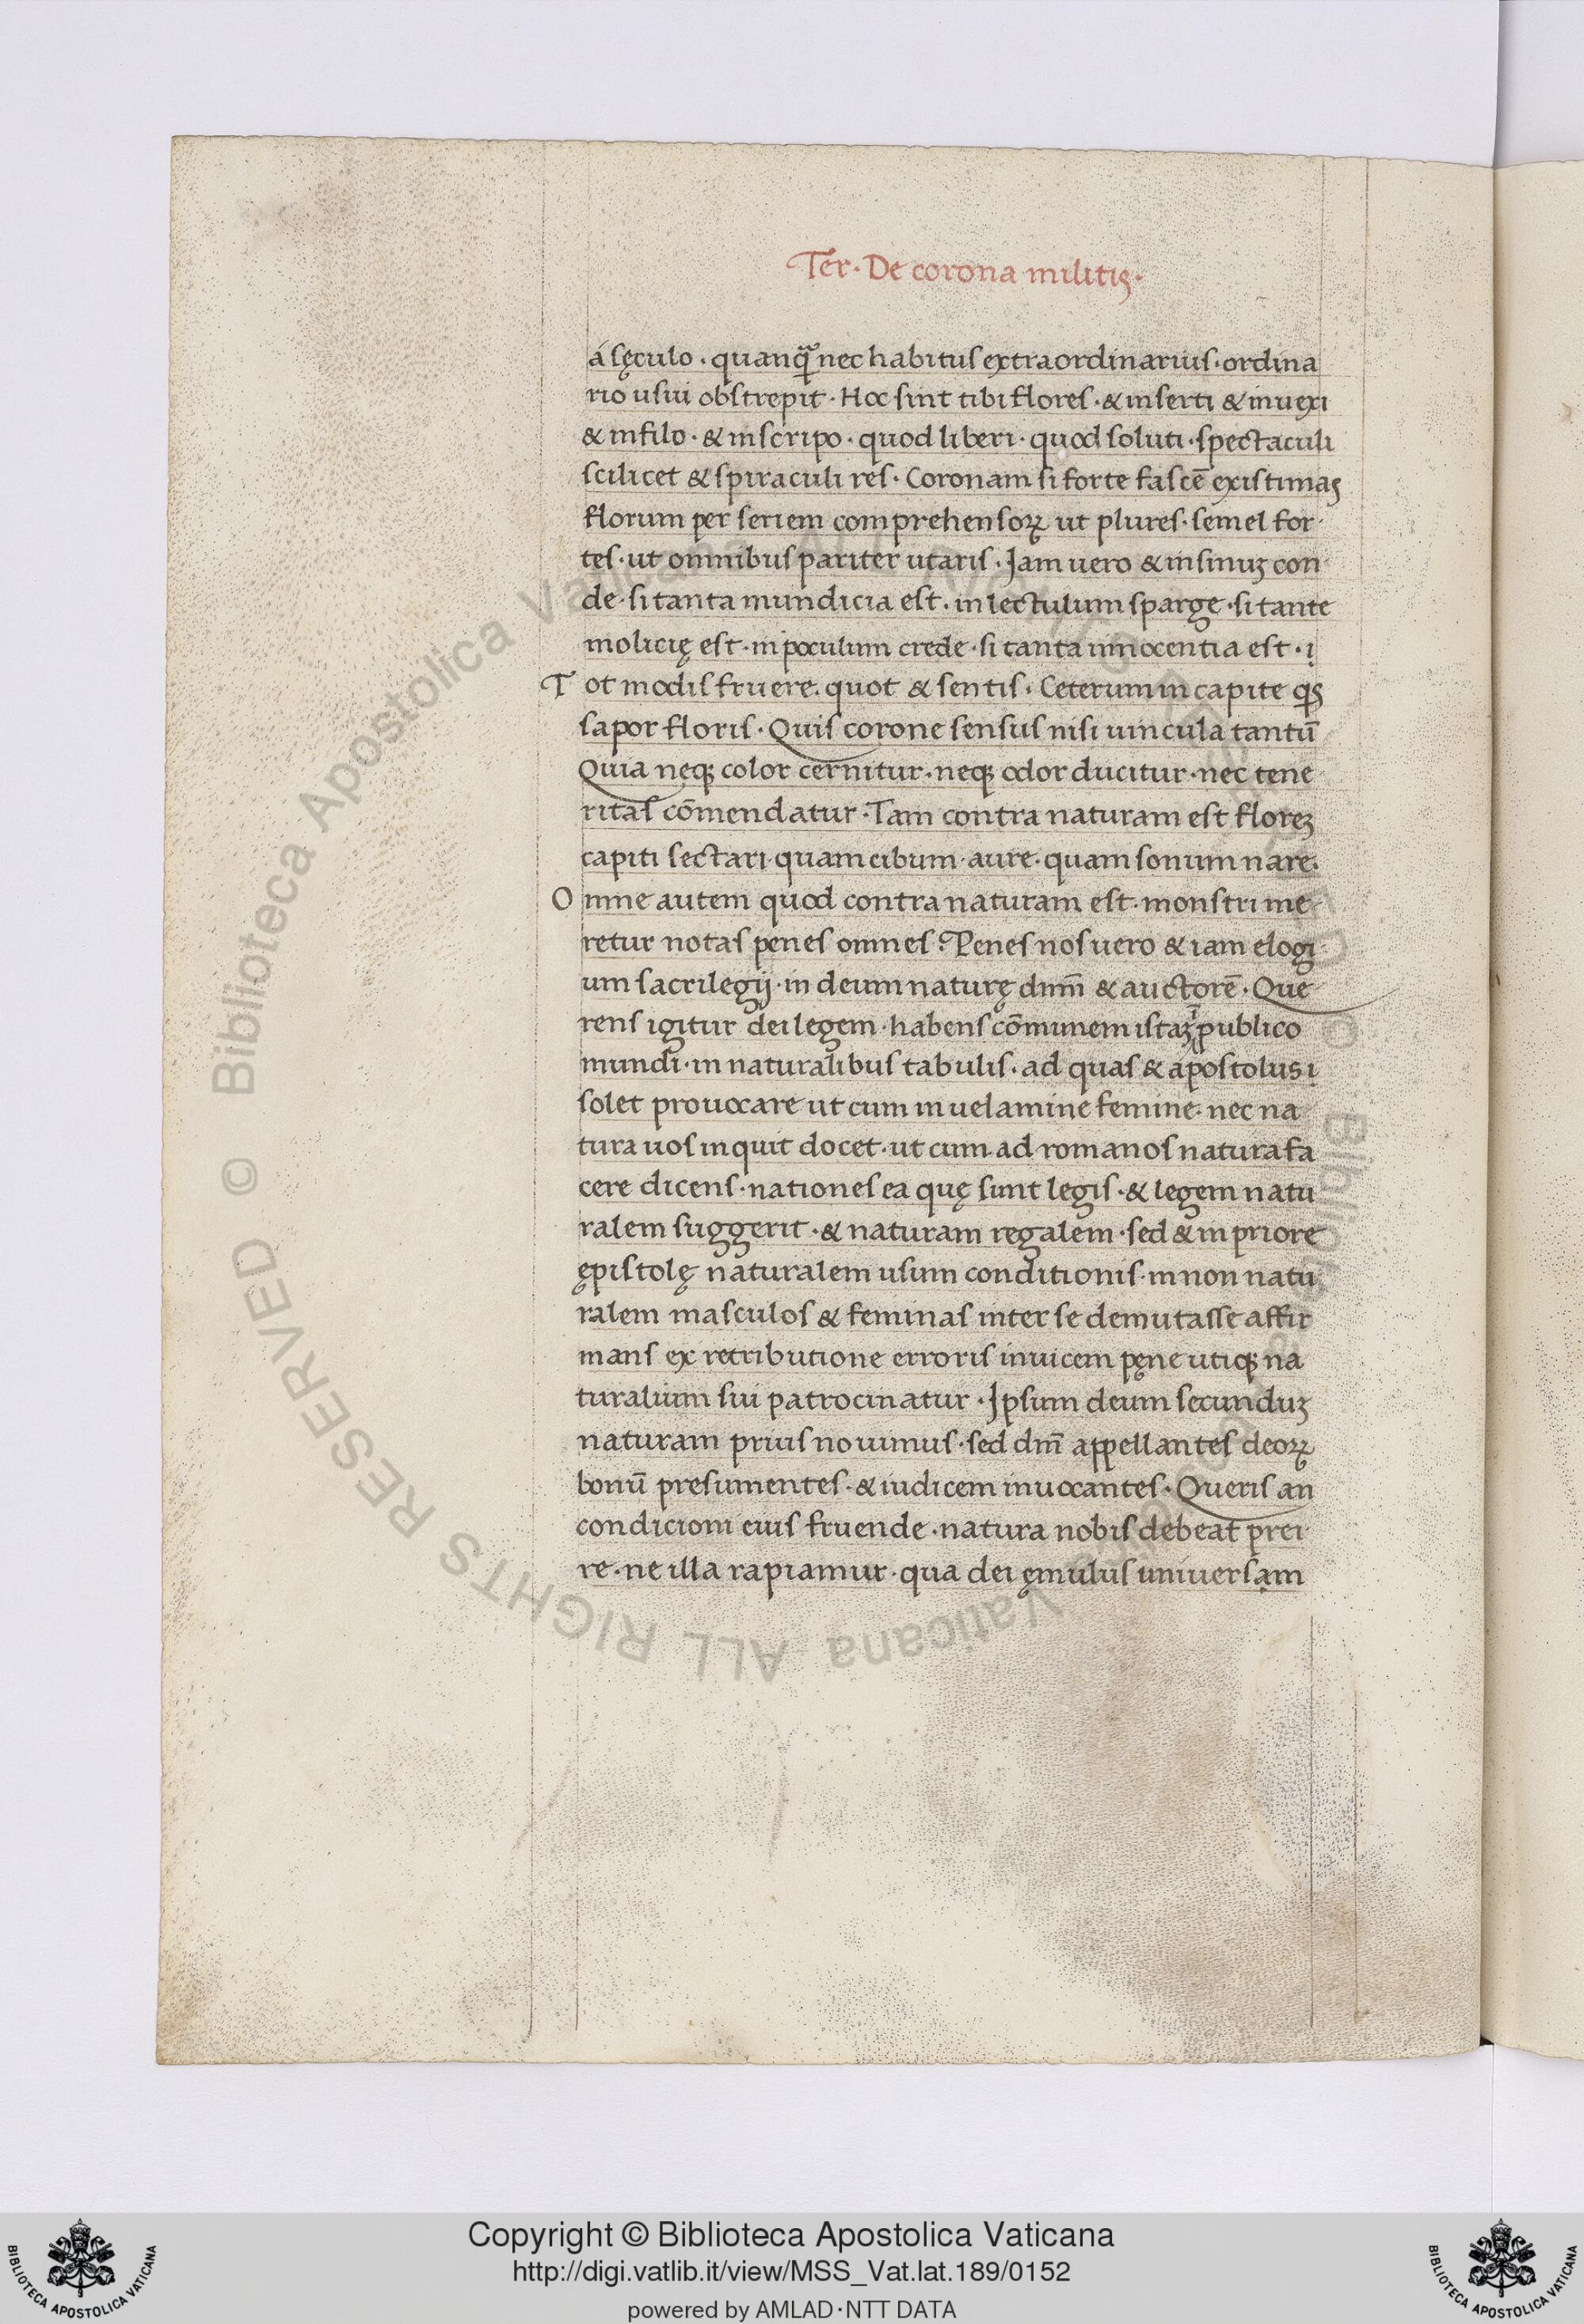 Ter· De corona militis·
á sęculo · quanq̃ nec habitus extraordinarius · ordina
rio usui obstrepit · Hoc sint tibi flores · & inserti & inuexi
& in filo · & in scirpo · quod liberi · quod soluti · spectaculi
scilicet & spiraculi res · Coronam si forte fascē existimas
florum per seriem comprehensoꝝ ut plures · semel for
tes · ut omnibus pariter utaris · Jam uero & in sinuȝ con
de · si tanta mundicia est · in lectulum sparge · si tante
molicię est · in poculum crede · si tanta innocentia est · i
Tot modis fruere · quot & sentis · Ceterum in capite qs
sapor floris · Quis corone sensus nisi uincula tantū
Quia neqꝫ color cernitur · neqꝫ odor ducitur · nec tene
ritas cōmendatur · Tam contra naturam est floreȝ
capiti sectari quam cibum · aure · quam sonum nare ·
Omne autem quod contra naturam est · monstri me
retur notas penes omnes · Penes nos uero & iam elogi
um sacrilegij · in deum naturę dnm̄ & auctorē · Que
rens igitur dei legem · habens cōmunem istaȝ ī publico
mundi · in naturalibus tabulis · ad quas & apostolus i
solet prouocare ut cum in uelamine femine · nec na
tura uos inquit docet · ut cum ad romanos natura fa
cere dicens · nationes ea quę sunt legis · & legem natu
ralem suggerit · & naturam regalem · sed & in priore
ępistolę naturalem usum conditionis · in non natu
ralem masculos & feminas inter se demutasse affir
mans ex retributione erroris inuicem pęne utiqꝫ na
turalium sui patrocinatur · Jpsum deum secunduȝ
naturam prius nouimus · sed dm̄ appellantes deoꝝ
bonū presumentes · & iudicem inuocantes · Queris an
condicioni eius fruende · natura nobis debeat prei
re · ne illa rapiamur · qua dei ęmulus uniuersam
© Biblioteca Apostolica Vaticana ALL RIGHTS RESERVED
Copyright © Biblioteca Apostolica Vaticana
http://digi.vatlib.it/view/MSS_Vat.lat.189/0152
powered by AMLAD·NTT DATA
BIBLIOTECA APOSTOLICA VATICANA
BIBLIOTECA APOSTOLICA VATICANA